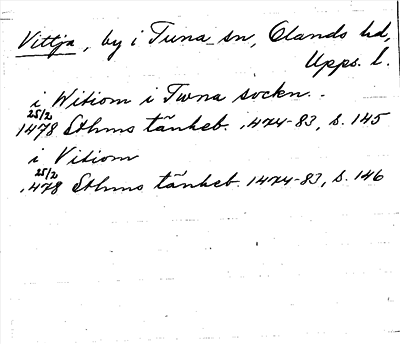 Vittja, by i Tuna sn, Olands hd,
Upps. l.
i Witiom i Twna sockn.
25/2
1478 Sthms tänkeb. 1474-83, s. 145
i Vitiom
25/2
1478 Sthms tänkeb. 1474-83, s. 146